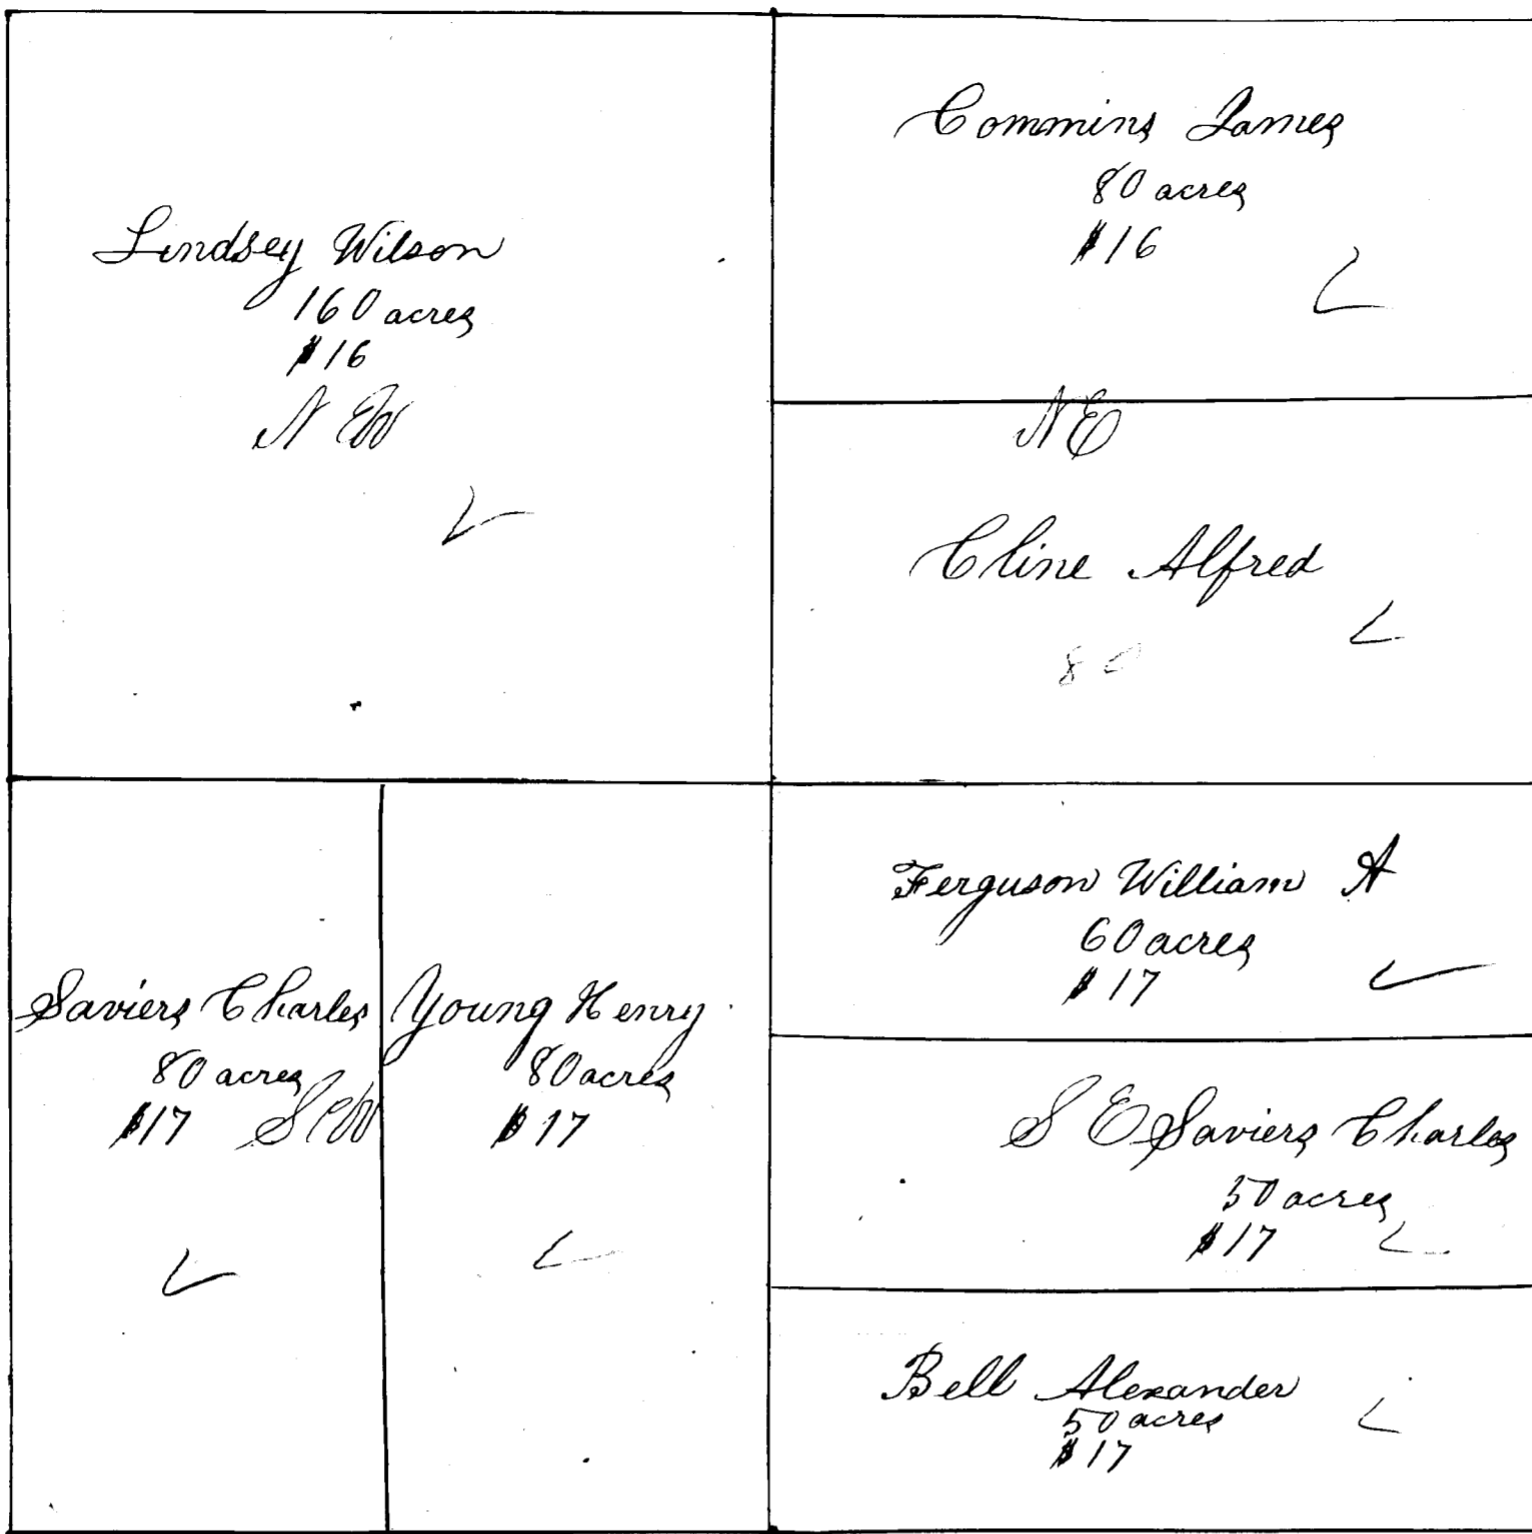 Lindsey Wilson
160 acres
$16
N W
Commins James
80 acres
$16
NE
Cline Alfred
80
Saviers Charles
80 acres
$17 S W
Young Henry
80 acres
$17
Ferguson William A
60 acres
$17
S E Saviers Charles
50 acres
$17
Bell Alexander
50 acres
$17